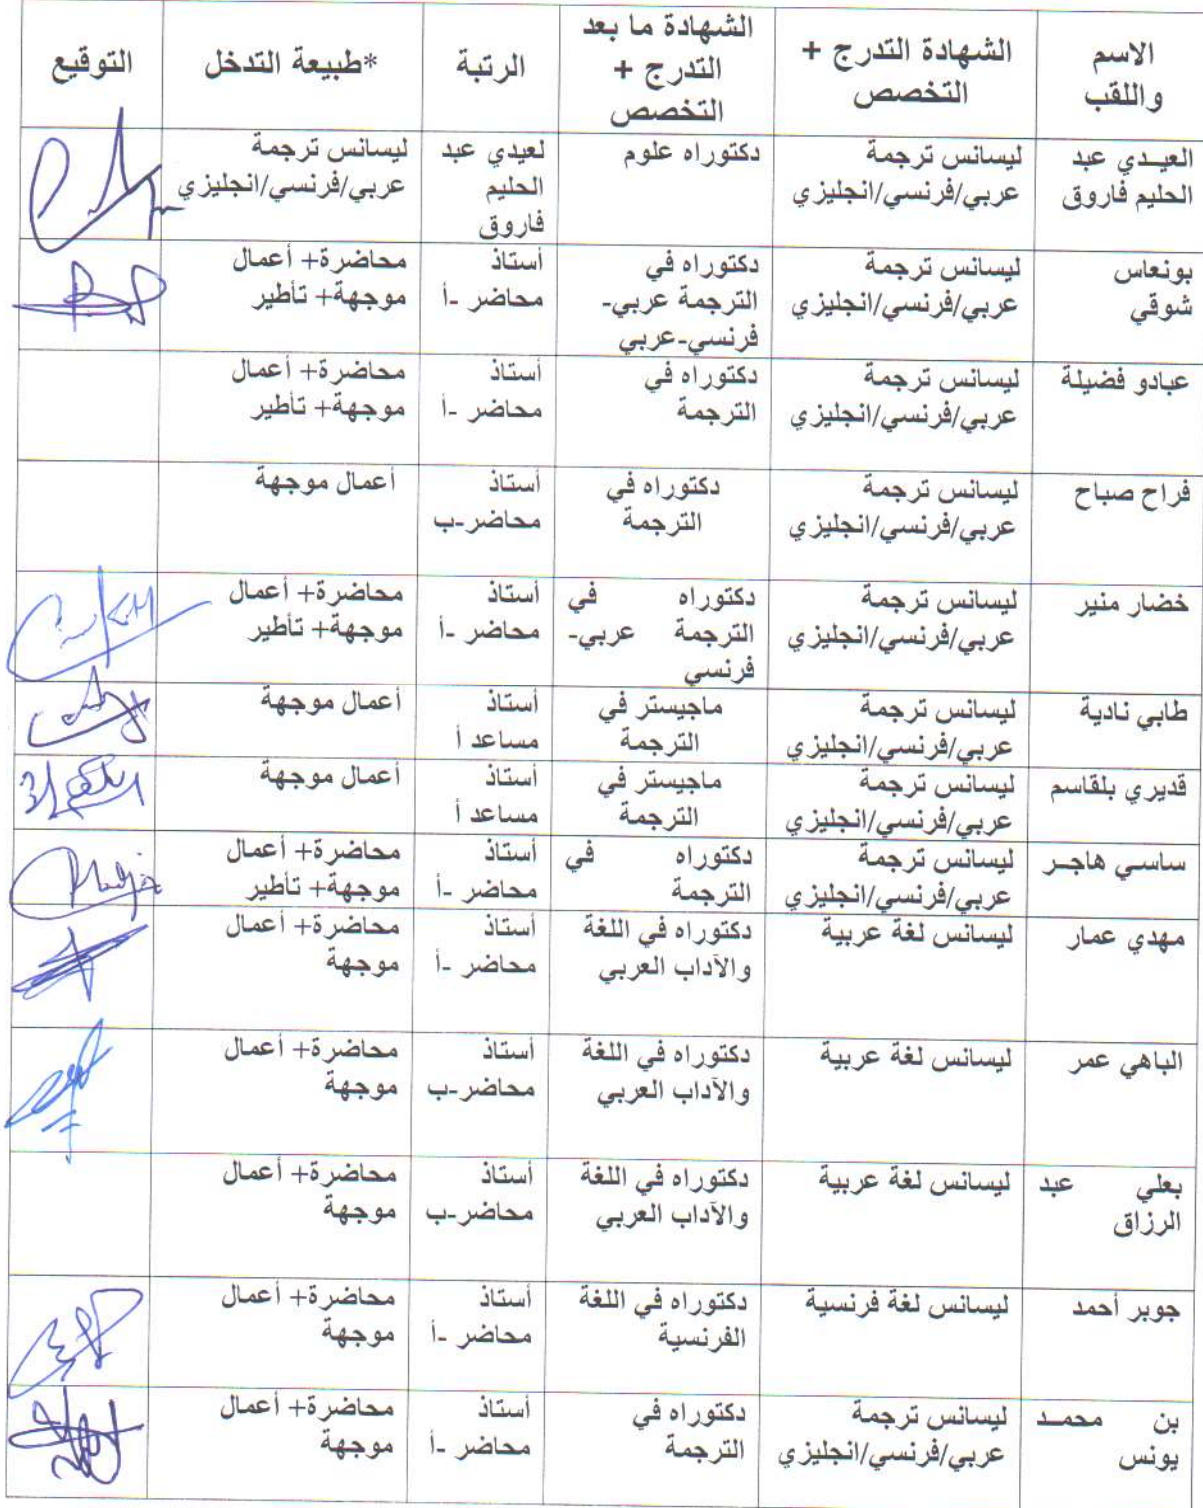 الاسم واللقب | الشهادة التدرج + التخصص | الشهادة ما بعد التدرج + التخصص | الرتبة | *طبيعة التدخل | التوقيع
العيـدي عبد الحليم فاروق | ليسانس ترجمة عربي/فرنسي/انجليزي | دكتوراه علوم | لعيدي عبد الحليم فاروق | ليسانس ترجمة عربي/فرنسي/انجليزي
بونعاس شوقي | ليسانس ترجمة عربي/فرنسي/انجليزي | دكتوراه في الترجمة عربي-فرنسي-عربي | أستاذ محاضر -أ | محاضرة+ أعمال موجهة+ تأطير
عبادو فضيلة | ليسانس ترجمة عربي/فرنسي/انجليزي | دكتوراه في الترجمة | أستاذ محاضر -أ | محاضرة+ أعمال موجهة+ تأطير
فراح صباح | ليسانس ترجمة عربي/فرنسي/انجليزي | دكتوراه في الترجمة | أستاذ محاضر-ب | أعمال موجهة
خضار منير | ليسانس ترجمة عربي/فرنسي/انجليزي | دكتوراه في الترجمة عربي-فرنسي | أستاذ محاضر -أ | محاضرة+ أعمال موجهة+ تأطير
طابي نادية | ليسانس ترجمة عربي/فرنسي/انجليزي | ماجيستر في الترجمة | أستاذ مساعد أ | أعمال موجهة
قديري بلقاسم | ليسانس ترجمة عربي/فرنسي/انجليزي | ماجيستر في الترجمة | أستاذ مساعد أ | أعمال موجهة
ساسي هاجـر | ليسانس ترجمة عربي/فرنسي/انجليزي | دكتوراه في الترجمة | أستاذ محاضر -أ | محاضرة+ أعمال موجهة+ تأطير
مهدي عمار | ليسانس لغة عربية | دكتوراه في اللغة والآداب العربي | أستاذ محاضر -أ | محاضرة+ أعمال موجهة
الباهي عمر | ليسانس لغة عربية | دكتوراه في اللغة والآداب العربي | أستاذ محاضر-ب | محاضرة+ أعمال موجهة
بعلي عبد الرزاق | ليسانس لغة عربية | دكتوراه في اللغة والآداب العربي | أستاذ محاضر-ب | محاضرة+ أعمال موجهة
جوبر أحمد | ليسانس لغة فرنسية | دكتوراه في اللغة الفرنسية | أستاذ محاضر -أ | محاضرة+ أعمال موجهة
بن محمـد يونس | ليسانس ترجمة عربي/فرنسي/انجليزي | دكتوراه في الترجمة | أستاذ محاضر -أ | محاضرة+ أعمال موجهة